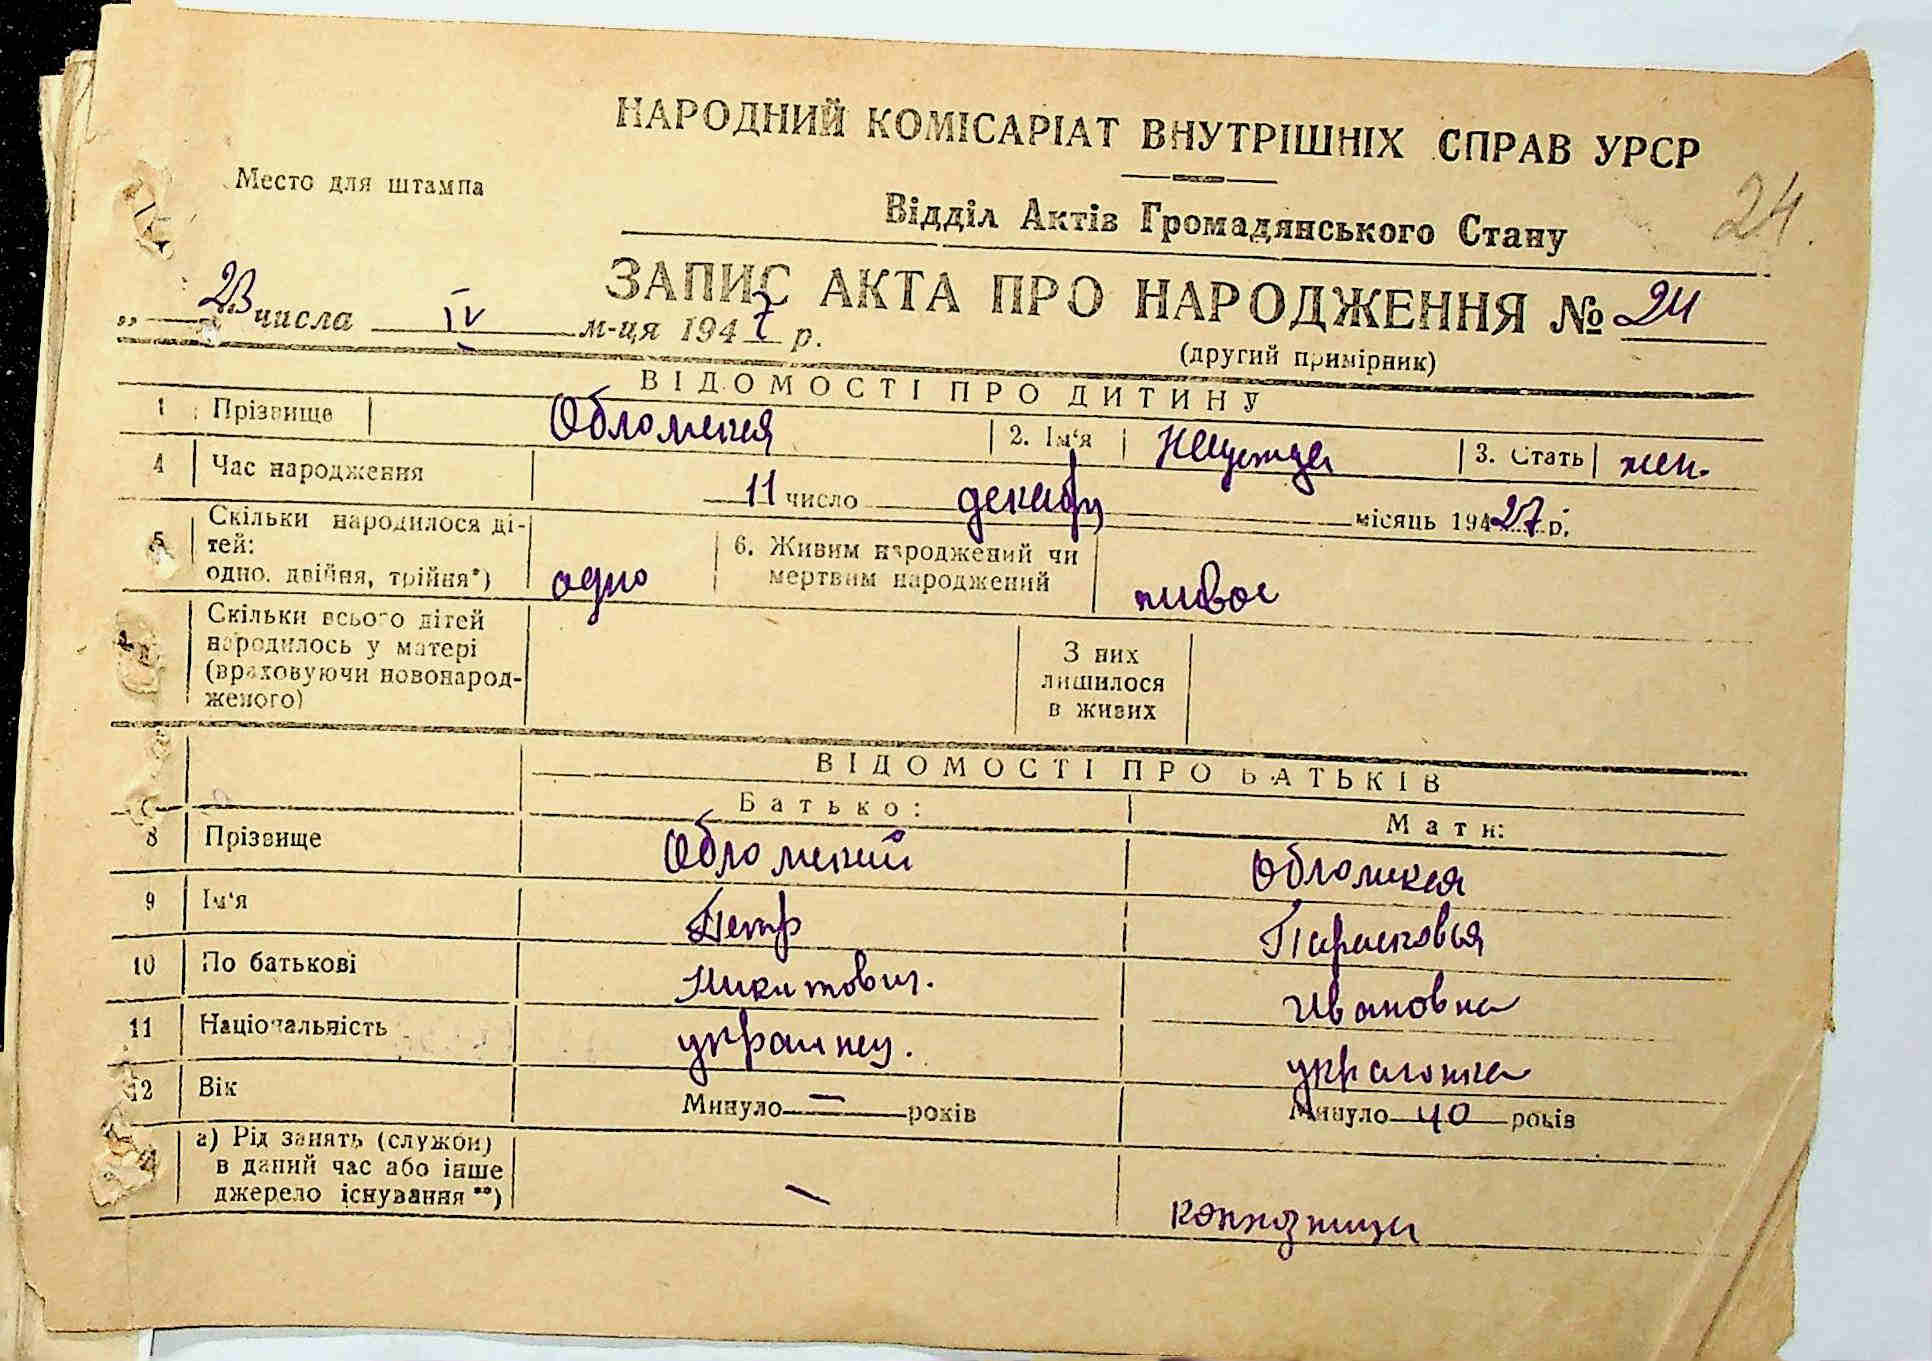 НАРОДНИЙ КОМІСАРІАТ ВНУТРІШНІХ СПРАВ УРСР
Место для штампа
24.
Відділ Актів Громадянського Стану
ЗАПИС АКТА ПРО НАРОДЖЕННЯ № 24
„ 23 числа IV м-ця 1947 р.
(другий примірник)
ВІДОМОСТІ ПРО ДИТИНУ
1 Прізвище 2. Ім'я 3. Стать жен.
4 Час народження 11 число декабр місяць 194 27 р.
5 Скільки народилося ді-
тей:
одно, двійня, трійня*) одно
6. Живим народжений чи
мертвим народжений живое
Скільки всього дітей
народилось у матері
(враховуючи новонарод-
женого)
З них
лишилося
в живих
ВІДОМОСТІ ПРО БАТЬКІВ
Батько: Мати:
8 Прізвище
9 Ім'я Петр Парасковья
10 По батькові Никитович. Ивановна
11 Національність украинец. украинка
12 Вік Минуло — років Минуло 40 років
а) Рід занять (служби)
в даний час або інше
джерело існування **) — колхозница